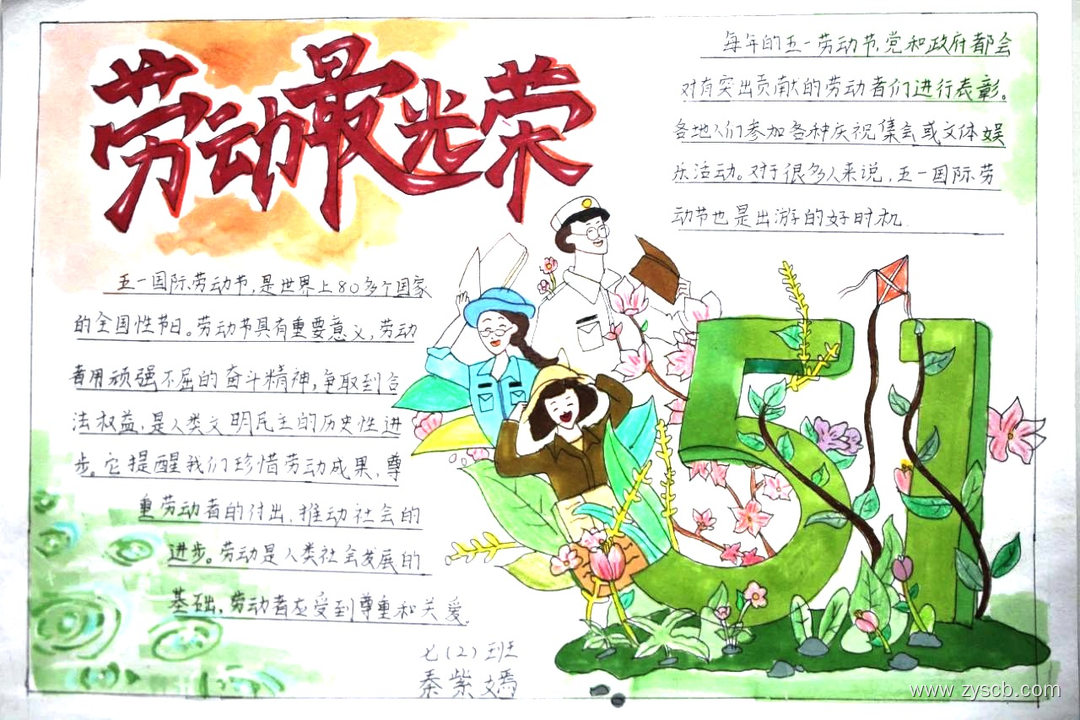 劳动最光荣
每年的五一劳动节,党和政府都会
对有突出贡献的劳动者们进行表彰。
各地人们参加各种庆祝集会或文体娱
乐活动。对于很多人来说,五一国际劳
动节也是出游的好时机.
五一国际劳动节,是世界上80多个国家
的全国性节日。劳动节具有重要意义,劳动
者用顽强不屈的奋斗精神,争取到合
法权益,是人类文明民主的历史性进
步。它提醒我们珍惜劳动成果、尊
重劳动者的付出、推动社会的
进步。劳动是人类社会发展的
基础,劳动者应受到尊重和关爱。
七(2)班
秦紫嫣
51
www.zyscb.com